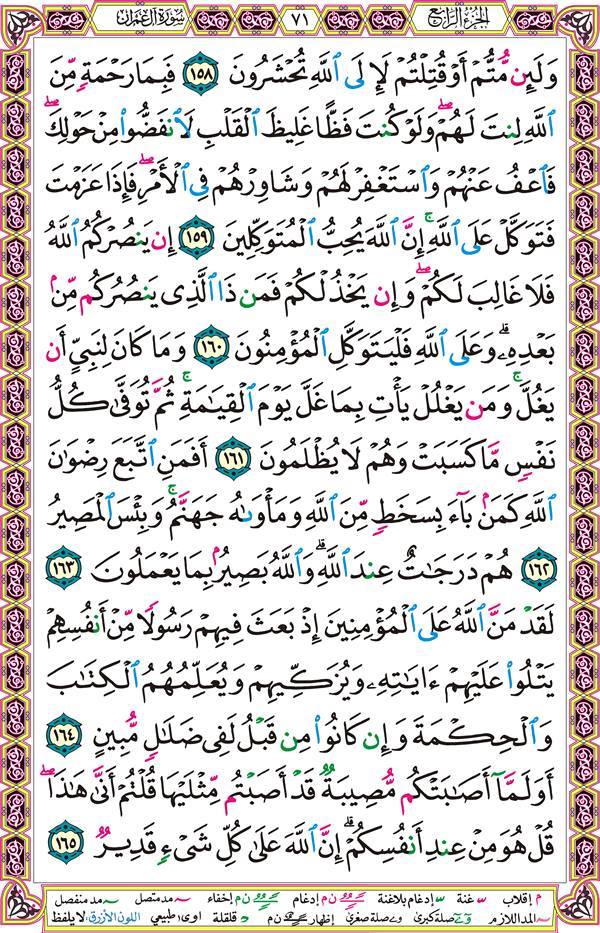 الجزء الرابع
٧١
سورة آل عمران
وَلَئِن مُّتُّمْ أَوْ قُتِلْتُمْ لَإِلَى ٱللَّهِ تُحْشَرُونَ ١٥٨ فَبِمَا رَحْمَةٍ مِّنَ
ٱللَّهِ لِنتَ لَهُمْ ۖ وَلَوْ كُنتَ فَظًّا غَلِيظَ ٱلْقَلْبِ لَٱنفَضُّوا۟ مِنْ حَوْلِكَ ۖ
فَٱعْفُ عَنْهُمْ وَٱسْتَغْفِرْ لَهُمْ وَشَاوِرْهُمْ فِى ٱلْأَمْرِ ۖ فَإِذَا عَزَمْتَ
فَتَوَكَّلْ عَلَى ٱللَّهِ ۚ إِنَّ ٱللَّهَ يُحِبُّ ٱلْمُتَوَكِّلِينَ ١٥٩ إِن يَنصُرْكُمُ ٱللَّهُ
فَلَا غَالِبَ لَكُمْ ۖ وَإِن يَخْذُلْكُمْ فَمَن ذَا ٱلَّذِى يَنصُرُكُم مِّنۢ
بَعْدِهِۦ ۗ وَعَلَى ٱللَّهِ فَلْيَتَوَكَّلِ ٱلْمُؤْمِنُونَ ١٦٠ وَمَا كَانَ لِنَبِىٍّ أَن
يَغُلَّ ۚ وَمَن يَغْلُلْ يَأْتِ بِمَا غَلَّ يَوْمَ ٱلْقِيَـٰمَةِ ۚ ثُمَّ تُوَفَّىٰ كُلُّ
نَفْسٍ مَّا كَسَبَتْ وَهُمْ لَا يُظْلَمُونَ ١٦١ أَفَمَنِ ٱتَّبَعَ رِضْوَٰنَ
ٱللَّهِ كَمَنۢ بَآءَ بِسَخَطٍ مِّنَ ٱللَّهِ وَمَأْوَىٰهُ جَهَنَّمُ ۚ وَبِئْسَ ٱلْمَصِيرُ
١٦٢ هُمْ دَرَجَـٰتٌ عِندَ ٱللَّهِ ۗ وَٱللَّهُ بَصِيرٌۢ بِمَا يَعْمَلُونَ ١٦٣
لَقَدْ مَنَّ ٱللَّهُ عَلَى ٱلْمُؤْمِنِينَ إِذْ بَعَثَ فِيهِمْ رَسُولًا مِّنْ أَنفُسِهِمْ
يَتْلُوا۟ عَلَيْهِمْ ءَايَـٰتِهِۦ وَيُزَكِّيهِمْ وَيُعَلِّمُهُمُ ٱلْكِتَـٰبَ
وَٱلْحِكْمَةَ وَإِن كَانُوا۟ مِن قَبْلُ لَفِى ضَلَـٰلٍ مُّبِينٍ ١٦٤
أَوَلَمَّآ أَصَـٰبَتْكُم مُّصِيبَةٌ قَدْ أَصَبْتُم مِّثْلَيْهَا قُلْتُمْ أَنَّىٰ هَـٰذَا ۖ
قُلْ هُوَ مِنْ عِندِ أَنفُسِكُمْ ۗ إِنَّ ٱللَّهَ عَلَىٰ كُلِّ شَىْءٍ قَدِيرٌ ١٦٥
م إقلاب غنة إدغام بلاغنة ن م إدغام ن م إخفاء مد متصل مد منفصل
المد اللازم صلة كبرى صلة صغرى إظهار ن م قلقلة اوى طبيعي اللون الأزرق: لا يلفظ